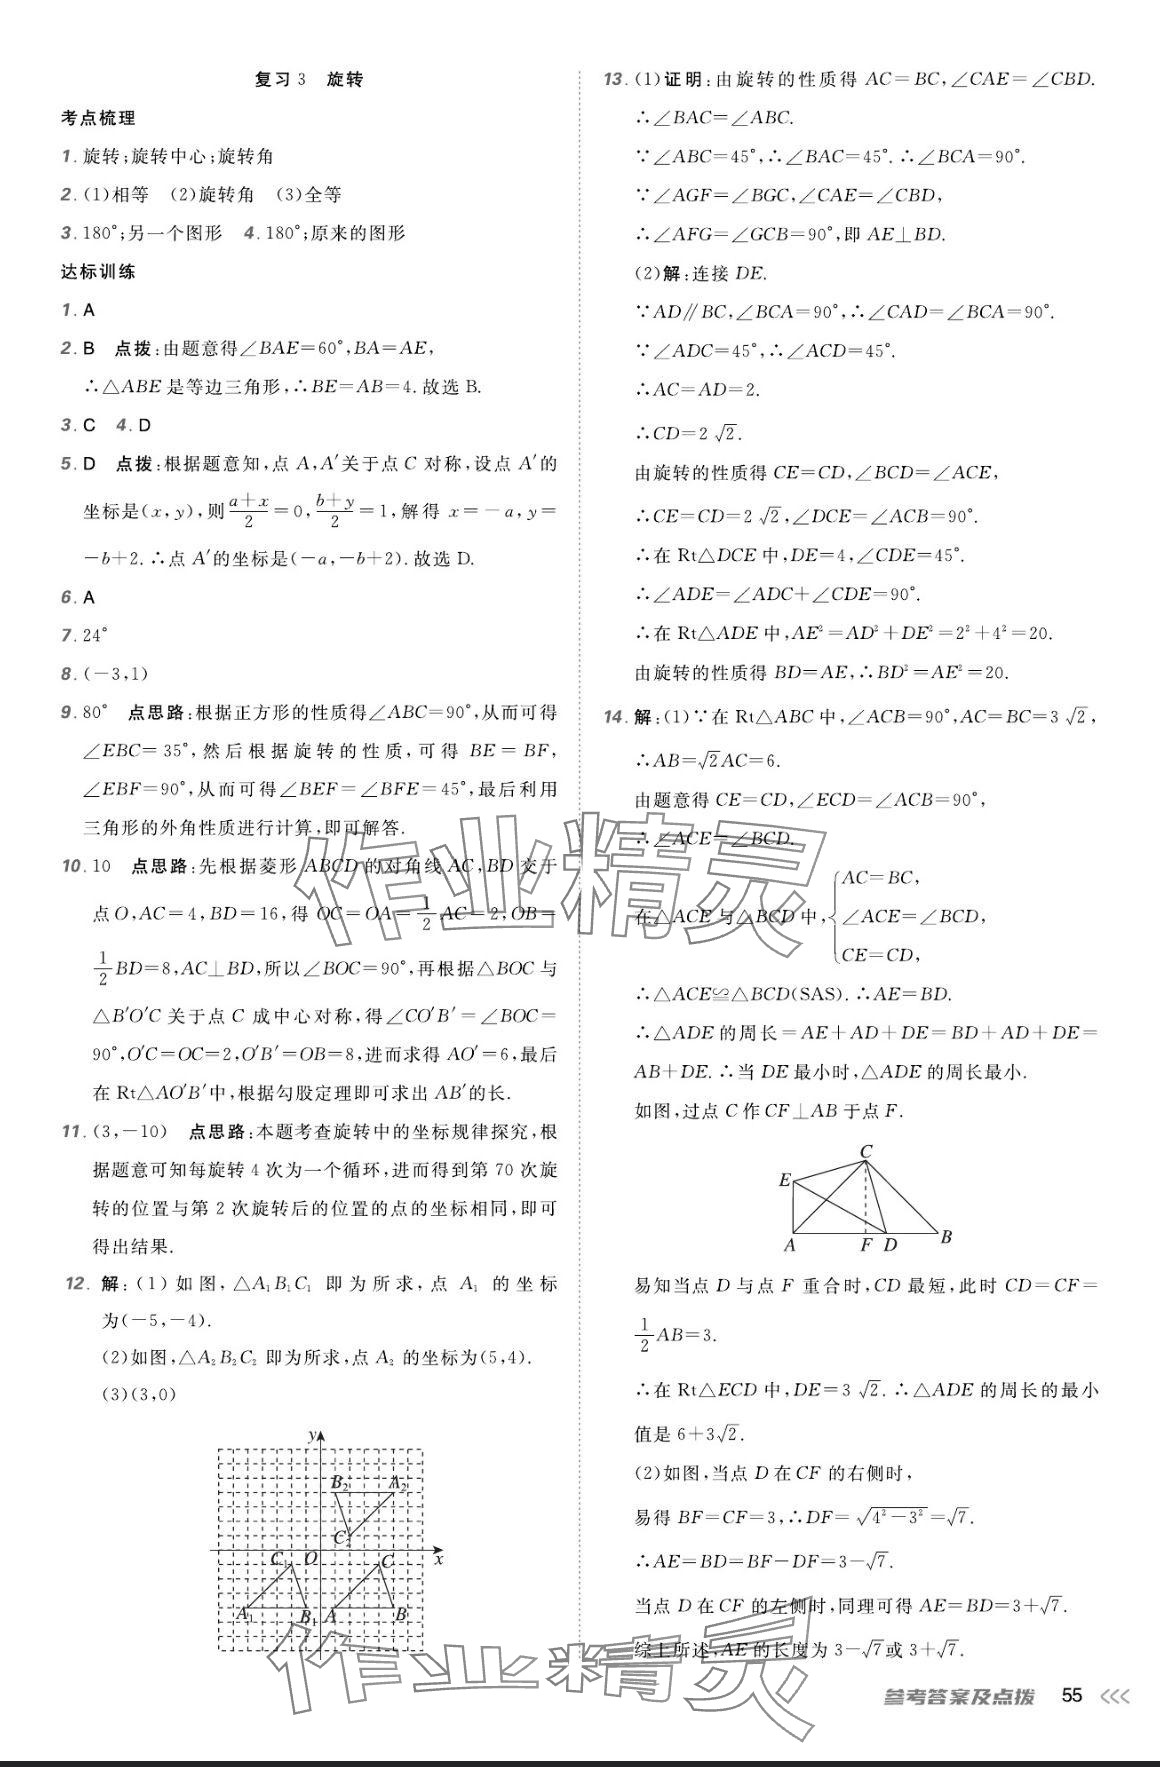 复习3 旋转
考点梳理
1.旋转;旋转中心;旋转角
2.(1)相等 (2)旋转角 (3)全等
3.180°;另一个图形 4.180°;原来的图形
达标训练
1.A
2.B 点拨:由题意得∠BAE=60°,BA=AE,
∴△ABE是等边三角形,∴BE=AB=4.故选B.
3.C 4.D
5.D 点拨:根据题意知,点A,A′关于点C对称,设点A′的
坐标是(x,y),则(a+x)/2=0,(b+y)/2=1,解得x=-a,y=
-b+2.∴点A′的坐标是(-a,-b+2).故选D.
6.A
7.24°
8.(-3,1)
9.80° 点思路:根据正方形的性质得∠ABC=90°,从而可得
∠EBC=35°,然后根据旋转的性质,可得BE=BF,
∠EBF=90°,从而可得∠BEF=∠BFE=45°,最后利用
三角形的外角性质进行计算,即可解答.
10.10 点思路:先根据菱形ABCD的对角线AC,BD交于
点O,AC=4,BD=16,得OC=OA=1/2AC=2,OB=
1/2BD=8,AC⊥BD,所以∠BOC=90°,再根据△BOC与
△B′O′C关于点C成中心对称,得∠CO′B′=∠BOC=
90°,O′C=OC=2,O′B′=OB=8,进而求得AO′=6,最后
在Rt△AO′B′中,根据勾股定理即可求出AB′的长.
11.(3,-10) 点思路:本题考查旋转中的坐标规律探究,根
据题意可知每旋转4次为一个循环,进而得到第70次旋
转的位置与第2次旋转后的位置的点的坐标相同,即可
得出结果.
12.解:(1)如图,△A₁B₁C₁即为所求,点A₁的坐标
为(-5,-4).
(2)如图,△A₂B₂C₂即为所求,点A₂的坐标为(5,4).
(3)(3,0)
y
B₂ A₂
C₂
C₁ O C x
A₁ B₁ A B
13.(1)证明:由旋转的性质得AC=BC,∠CAE=∠CBD.
∴∠BAC=∠ABC.
∵∠ABC=45°,∴∠BAC=45°.∴∠BCA=90°.
∵∠AGF=∠BGC,∠CAE=∠CBD,
∴∠AFG=∠GCB=90°,即AE⊥BD.
(2)解:连接DE.
∵AD∥BC,∠BCA=90°,∴∠CAD=∠BCA=90°.
∵∠ADC=45°,∴∠ACD=45°.
∴AC=AD=2.
∴CD=2√2.
由旋转的性质得CE=CD,∠BCD=∠ACE,
∴CE=CD=2√2,∠DCE=∠ACB=90°.
∴在Rt△DCE中,DE=4,∠CDE=45°.
∴∠ADE=∠ADC+∠CDE=90°.
∴在Rt△ADE中,AE²=AD²+DE²=2²+4²=20.
由旋转的性质得BD=AE,∴BD²=AE²=20.
14.解:(1)∵在Rt△ABC中,∠ACB=90°,AC=BC=3√2,
∴AB=√2AC=6.
由题意得CE=CD,∠ECD=∠ACB=90°,
∴∠ACE=∠BCD.
AC=BC,
在△ACE与△BCD中,{∠ACE=∠BCD,
CE=CD,
∴△ACE≌△BCD(SAS).∴AE=BD.
∴△ADE的周长=AE+AD+DE=BD+AD+DE=
AB+DE.∴当DE最小时,△ADE的周长最小.
如图,过点C作CF⊥AB于点F.
C
E
A F D B
易知当点D与点F重合时,CD最短,此时CD=CF=
1/2AB=3.
∴在Rt△ECD中,DE=3√2.∴△ADE的周长的最小
值是6+3√2.
(2)如图,当点D在CF的右侧时,
易得BF=CF=3,∴DF=√(4²-3²)=√7.
∴AE=BD=BF-DF=3-√7.
当点D在CF的左侧时,同理可得AE=BD=3+√7.
综上所述,AE的长度为3-√7或3+√7.
作业精灵
作业精灵
参考答案及点拨 55 <<<